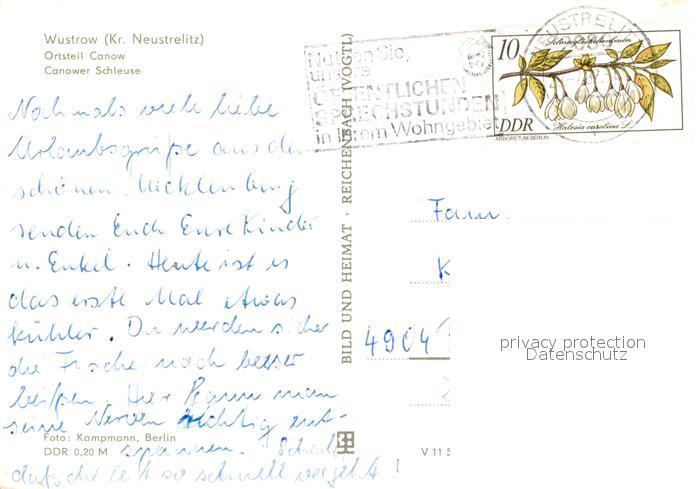 Wustrow (Kr. Neustrelitz)
Ortsteil Canow
Canower Schleuse
Nochmals viele liebe
Urlaubsgrüße aus dem
schönen Mecklenburg
senden Euch Eure Kinder
u. Enkel. Heute ist es
das erste Mal etwas
kühler. Da werden sicher
die Fische noch besser
beißen. Hier kann man
seine Nerven richtig ent-
spannen. Schade,
daß die Zeit so schnell vergeht!
Foto: Kampmann, Berlin
DDR 0,20 M
BILD UND HEIMAT · REICHENBACH (VOGTL)
V 11 5
Nutzen Sie,
unsere
ÖFFENTLICHEN
SPRECHSTUNDEN
in Ihrem Wohngebiet
NEUSTRELI
10
Schneeglöckchenbaum
DDR
Halesia carolina L.
ARBORETUM BERLIN
Fam.
K
4904
privacy protection
Datenschutz